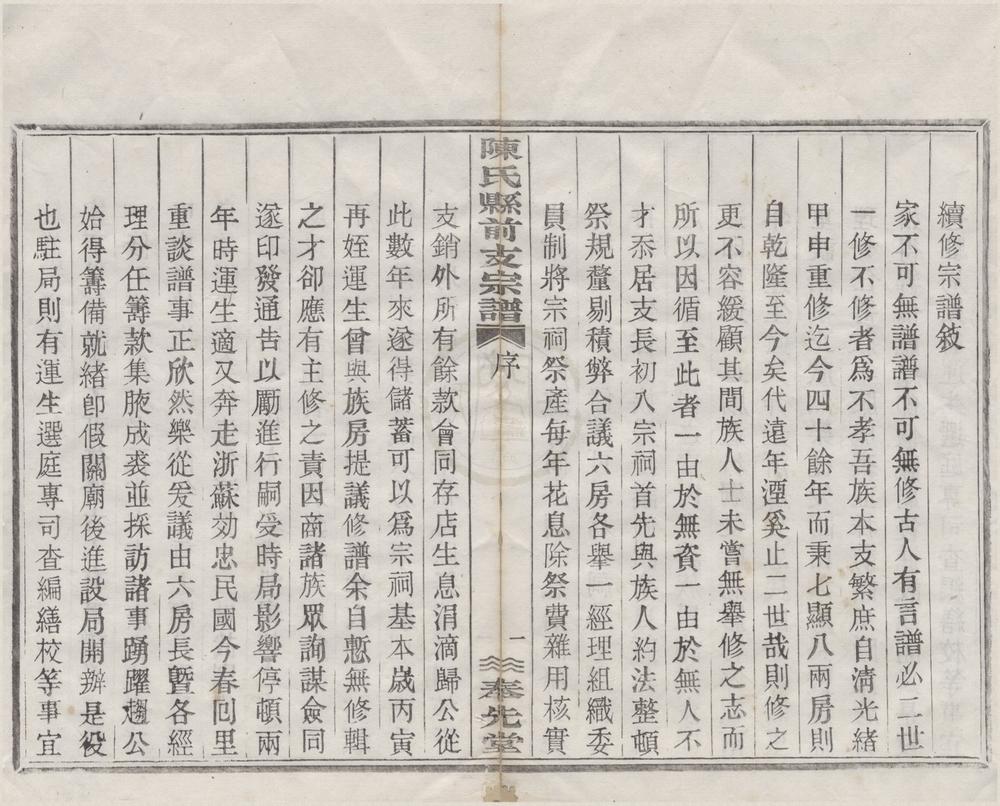 續修宗譜敍
家不可無譜譜不可無修古人有言譜必二世
一修不修者爲不孝吾族本支繁庶自清光緒
甲申重修迄今四十餘年而秉七顯八兩房則
自乾隆至今矣代遠年湮奚止二世哉則修之
更不容緩顧其間族人士未嘗無舉修之志而
所以因循至此者一由於無資一由於無人不
才忝居支長初入宗祠首先與族人約法整頓
祭規釐剔積弊合議六房各舉一經理組織委
員制將宗祠祭產每年花息除祭費雜用核實
陳氏縣前支宗譜 序 一 奉先堂
支銷外所有餘款曾同存店生息涓滴歸公從
此數年來遂得儲蓄可以爲宗祠基本歲丙寅
再姪運生曾與族房提議修譜余自慙無修輯
之才卻應有主修之責因商諸族眾詢謀僉同
遂印發通告以勵進行嗣受時局影響停頓兩
年時運生適又奔走浙蘇効忠民國今春回里
重談譜事正欣然樂從爰議由六房長暨各經
理分任籌款集腋成裘並採訪諸事踴躍趨公
始得籌備就緒卽假關廟後進設局開辦是役
也駐局則有運生選庭專司查編繕校等事宜